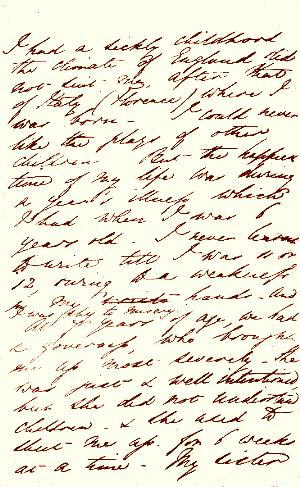 I had a sickly childhood
the climate of England did
not suit me, after that
of Italy (Florence) where I
was born - I could never
like the plays of other
children. But the happiest
time of my life was during
a year's illness which
I had when I was 6
years old. I never learnt
to write till I was 11 or
12 owing to a weakness
in my hands - And
I was shy to misery.
At 7 years of age, we had
a governess, who brought
me up most severely - She
was just & well intentioned
but she did not understand
children - & she used to
shut me up for 6 weeks
at a time - My sister